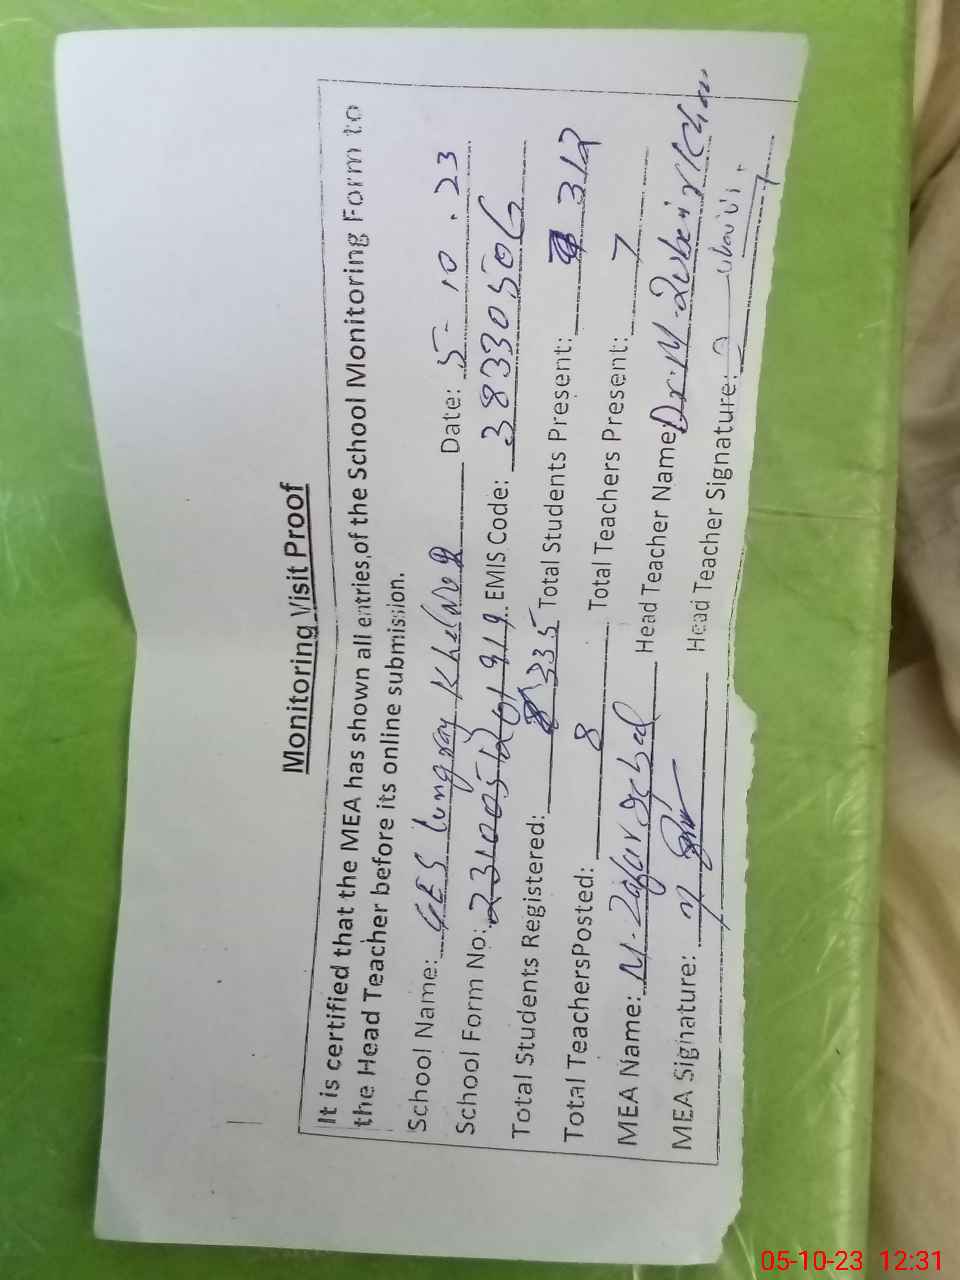 Monitoring Visit Proof
It is certified that the MEA has shown all entries of the School Monitoring Form to
the Head Teacher before its online submission.
School Name: GES Lungray Date: 5-10.23
School Form No: EMIS Code: 38330506
Total Students Registered: 335 Total Students Present: 312
Total TeachersPosted: 8 Total Teachers Present: 7
MEA Name: M. Head Teacher Name: Dr. M. Zubair Khan
MEA Signature: Head Teacher Signature:
05-10-23 12:31